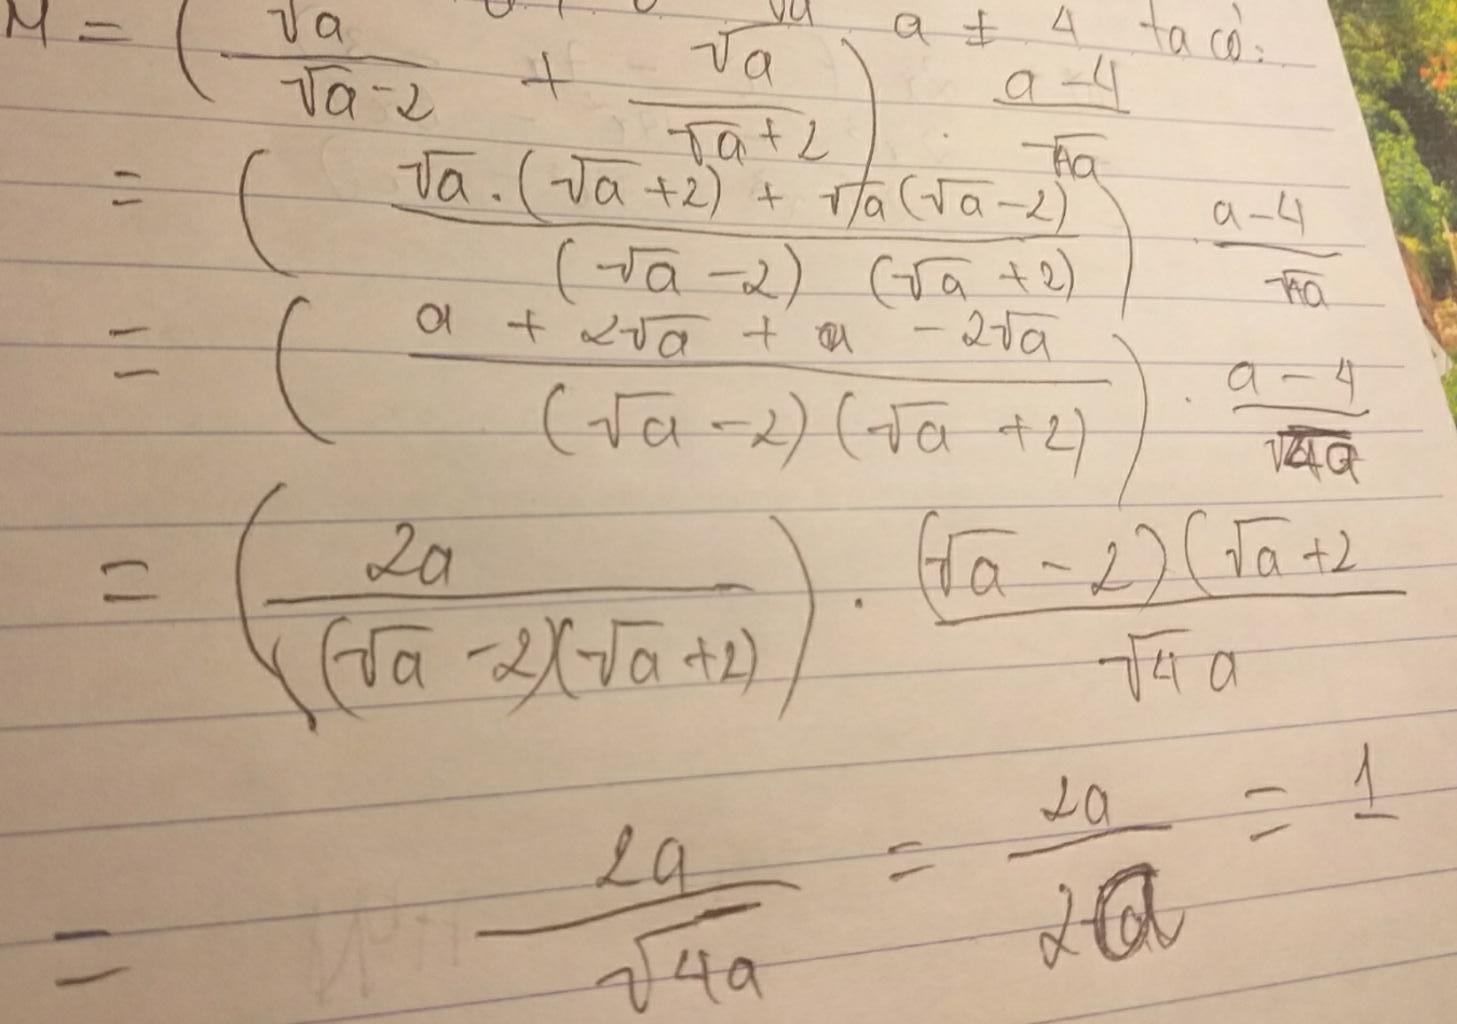 M = ( √a / (√a - 2) + √a / (√a + 2) ) . (a - 4) / √4a
a ≠ 4 ta có:
= ( (√a . (√a + 2) + √a (√a - 2)) / ((√a - 2) (√a + 2)) ) . (a - 4) / √4a
= ( (a + 2√a + a - 2√a) / ((√a - 2) (√a + 2)) ) . (a - 4) / √4a
= ( 2a / ((√a - 2)(√a + 2)) ) . (√a - 2) (√a + 2 / √4 a
= 2a / √4a = 2a / 2a = 1